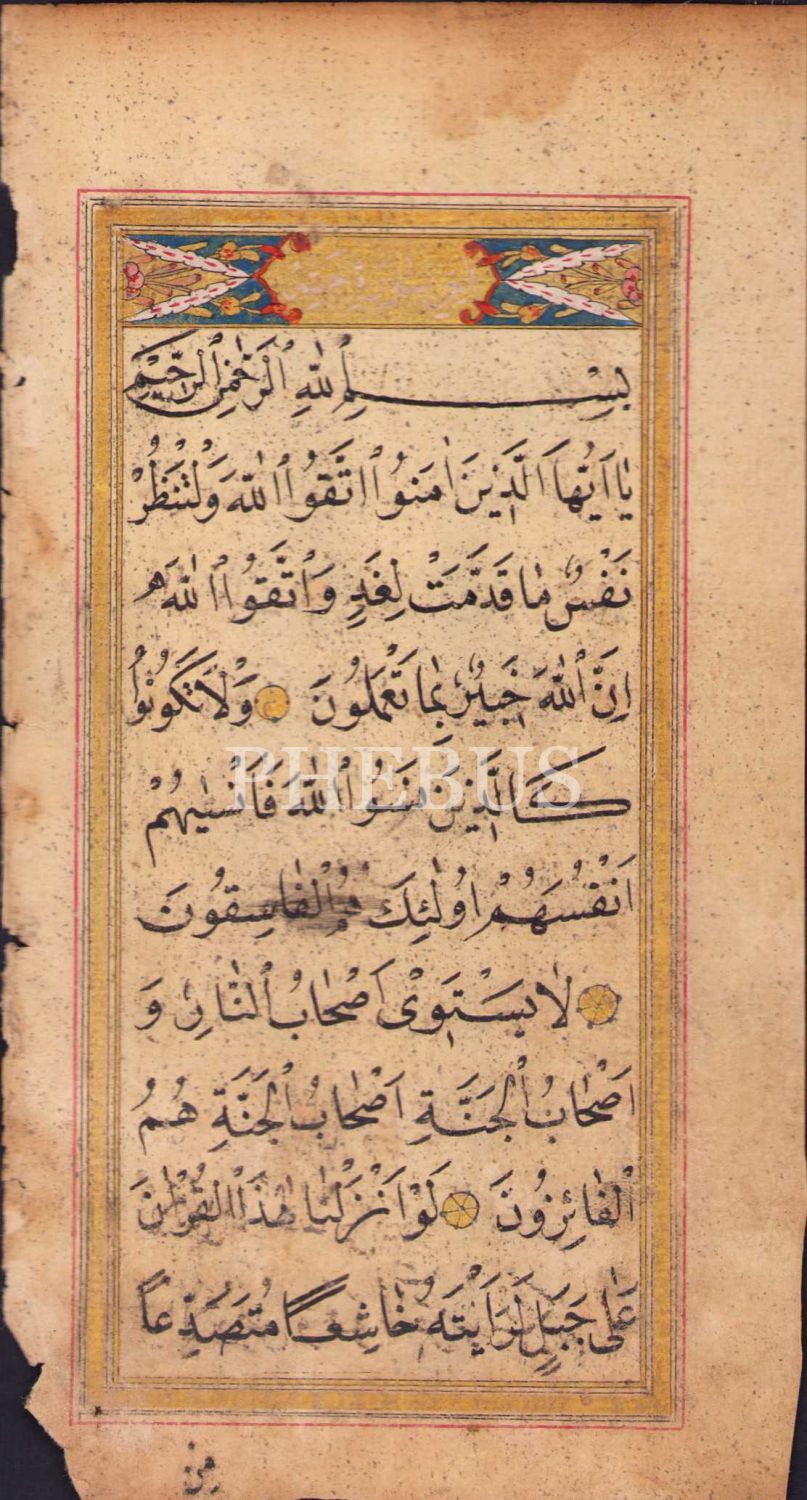 بِسْمِ ٱللّٰهِ ٱلرَّحْمٰنِ ٱلرَّحِيمِ
يٰا اَيُّهَا الَّذِينَ اٰمَنُوا اتَّقُوا اللّٰهَ وَلْتَنْظُرْ
نَفْسٌ مٰا قَدَّمَتْ لِغَدٍ وَاتَّقُوا اللّٰهَ
اِنَّ اللّٰهَ خَبِيرٌ بِمٰا تَعْمَلُونَ وَلٰا تَكُونُوا
PHEBUS
كَالَّذِينَ نَسُوا اللّٰهَ فَاَنْسٰيهُمْ
اَنْفُسَهُمْ اُولٰئِكَ هُمُ الْفٰاسِقُونَ
لٰا يَسْتَوِى اَصْحٰابُ النّٰارِ وَ
اَصْحٰابُ الْجَنَّةِ اَصْحٰابُ الْجَنَّةِ هُمُ
الْفٰائِزُونَ لَوْ اَنْزَلْنٰا هٰذَا الْقُرْاٰنَ
عَلٰى جَبَلٍ لَرَاَيْتَهُ خٰاشِعًا مُتَصَدِّعًا
مِنْ